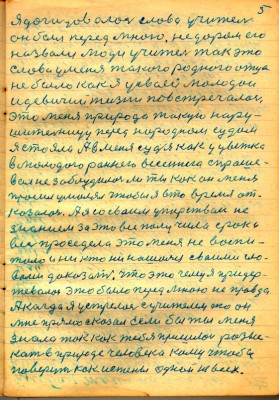 5
Я догадовалася слова учителя
он был передомною, не даром его
назвали люди учитель так это
слова у меня такого родного отца
не было как я у своей молодой
и девичий жизни повстречалась,
это меня природа такую нару-
шительницу перед народном судом
я стояла А в меня судья как у цветка
в молодого раннего весеннего спраше-
вал не заблудилась ли ты как он меня
просил умолял чтобы я в то время от-
казалась. А я со своим упорством не
знанием за это все получила срок и
все проседела это меня не воспи-
тало а ни кто ни нашолся своими сло-
вами доказать, что это чему я придер-
живалась это было передомною не правда
А когда я устрелась с учителем то он
мне прямо сказал если бы ты меня
знала так как тебя пришлось розыс-
кать в природе человека кому чтобы
поверить как истены одной на всех.